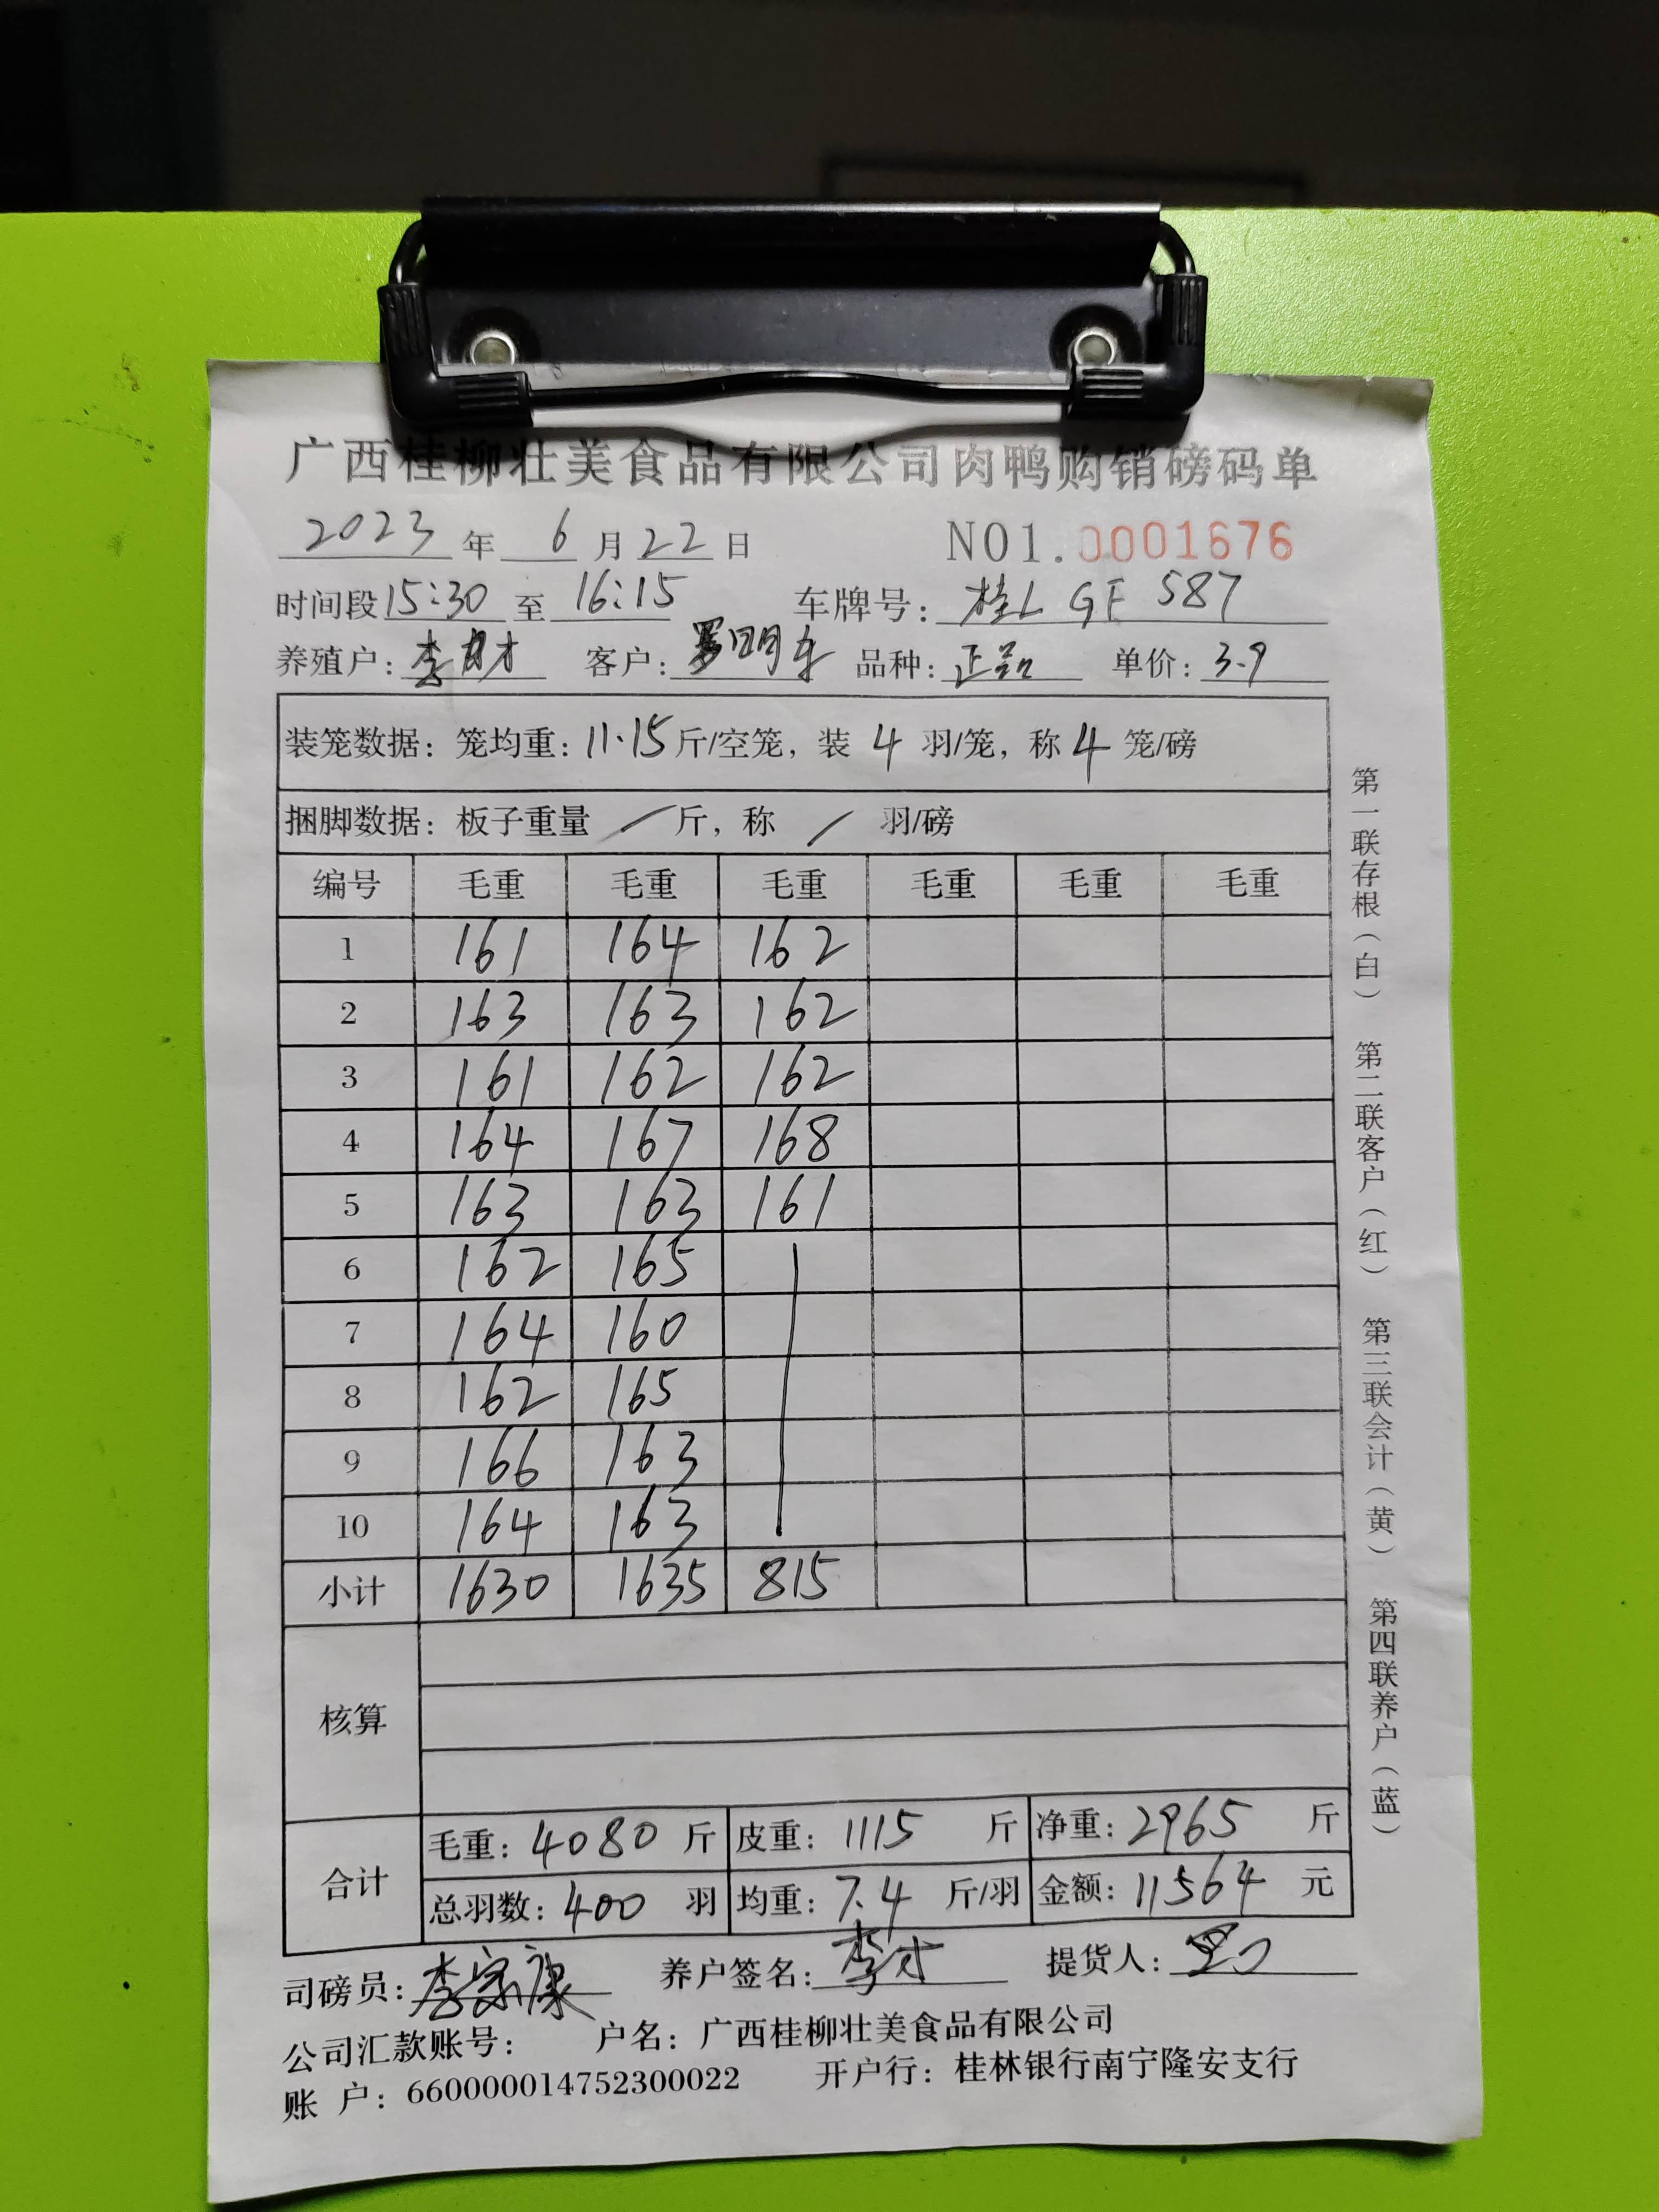 广西桂柳壮美食品有限公司肉鸭购销磅码单
2023 年 6 月 22 日 NO1.0001676
时间段 15:30 至 16:15 车牌号: 桂L GF 587
养殖户: 李 客户: 罗明 品种: 正品 单价: 3.9
装笼数据: 笼均重: 11.15 斤/空笼, 装 4 羽/笼, 称 4 笼/磅
捆脚数据: 板子重量 / 斤, 称 / 羽/磅
编号 毛重 毛重 毛重 毛重 毛重 毛重
1 161 164 162
2 163 163 162
3 161 162 162
4 164 167 168
5 163 163 161
6 162 165
7 164 160
8 162 165
9 166 163
10 164 163
小计 1630 1635 815
核算
合计
毛重: 4080 斤 皮重: 1115 斤 净重: 2965 斤
总羽数: 400 羽 均重: 7.4 斤/羽 金额: 11564 元
司磅员: 李家康 养户签名: 李才 提货人:
公司汇款账号: 户名: 广西桂柳壮美食品有限公司
账 户: 660000014752300022 开户行: 桂林银行南宁隆安支行
第一联存根(白) 第二联客户(红) 第三联会计(黄) 第四联养户(蓝)